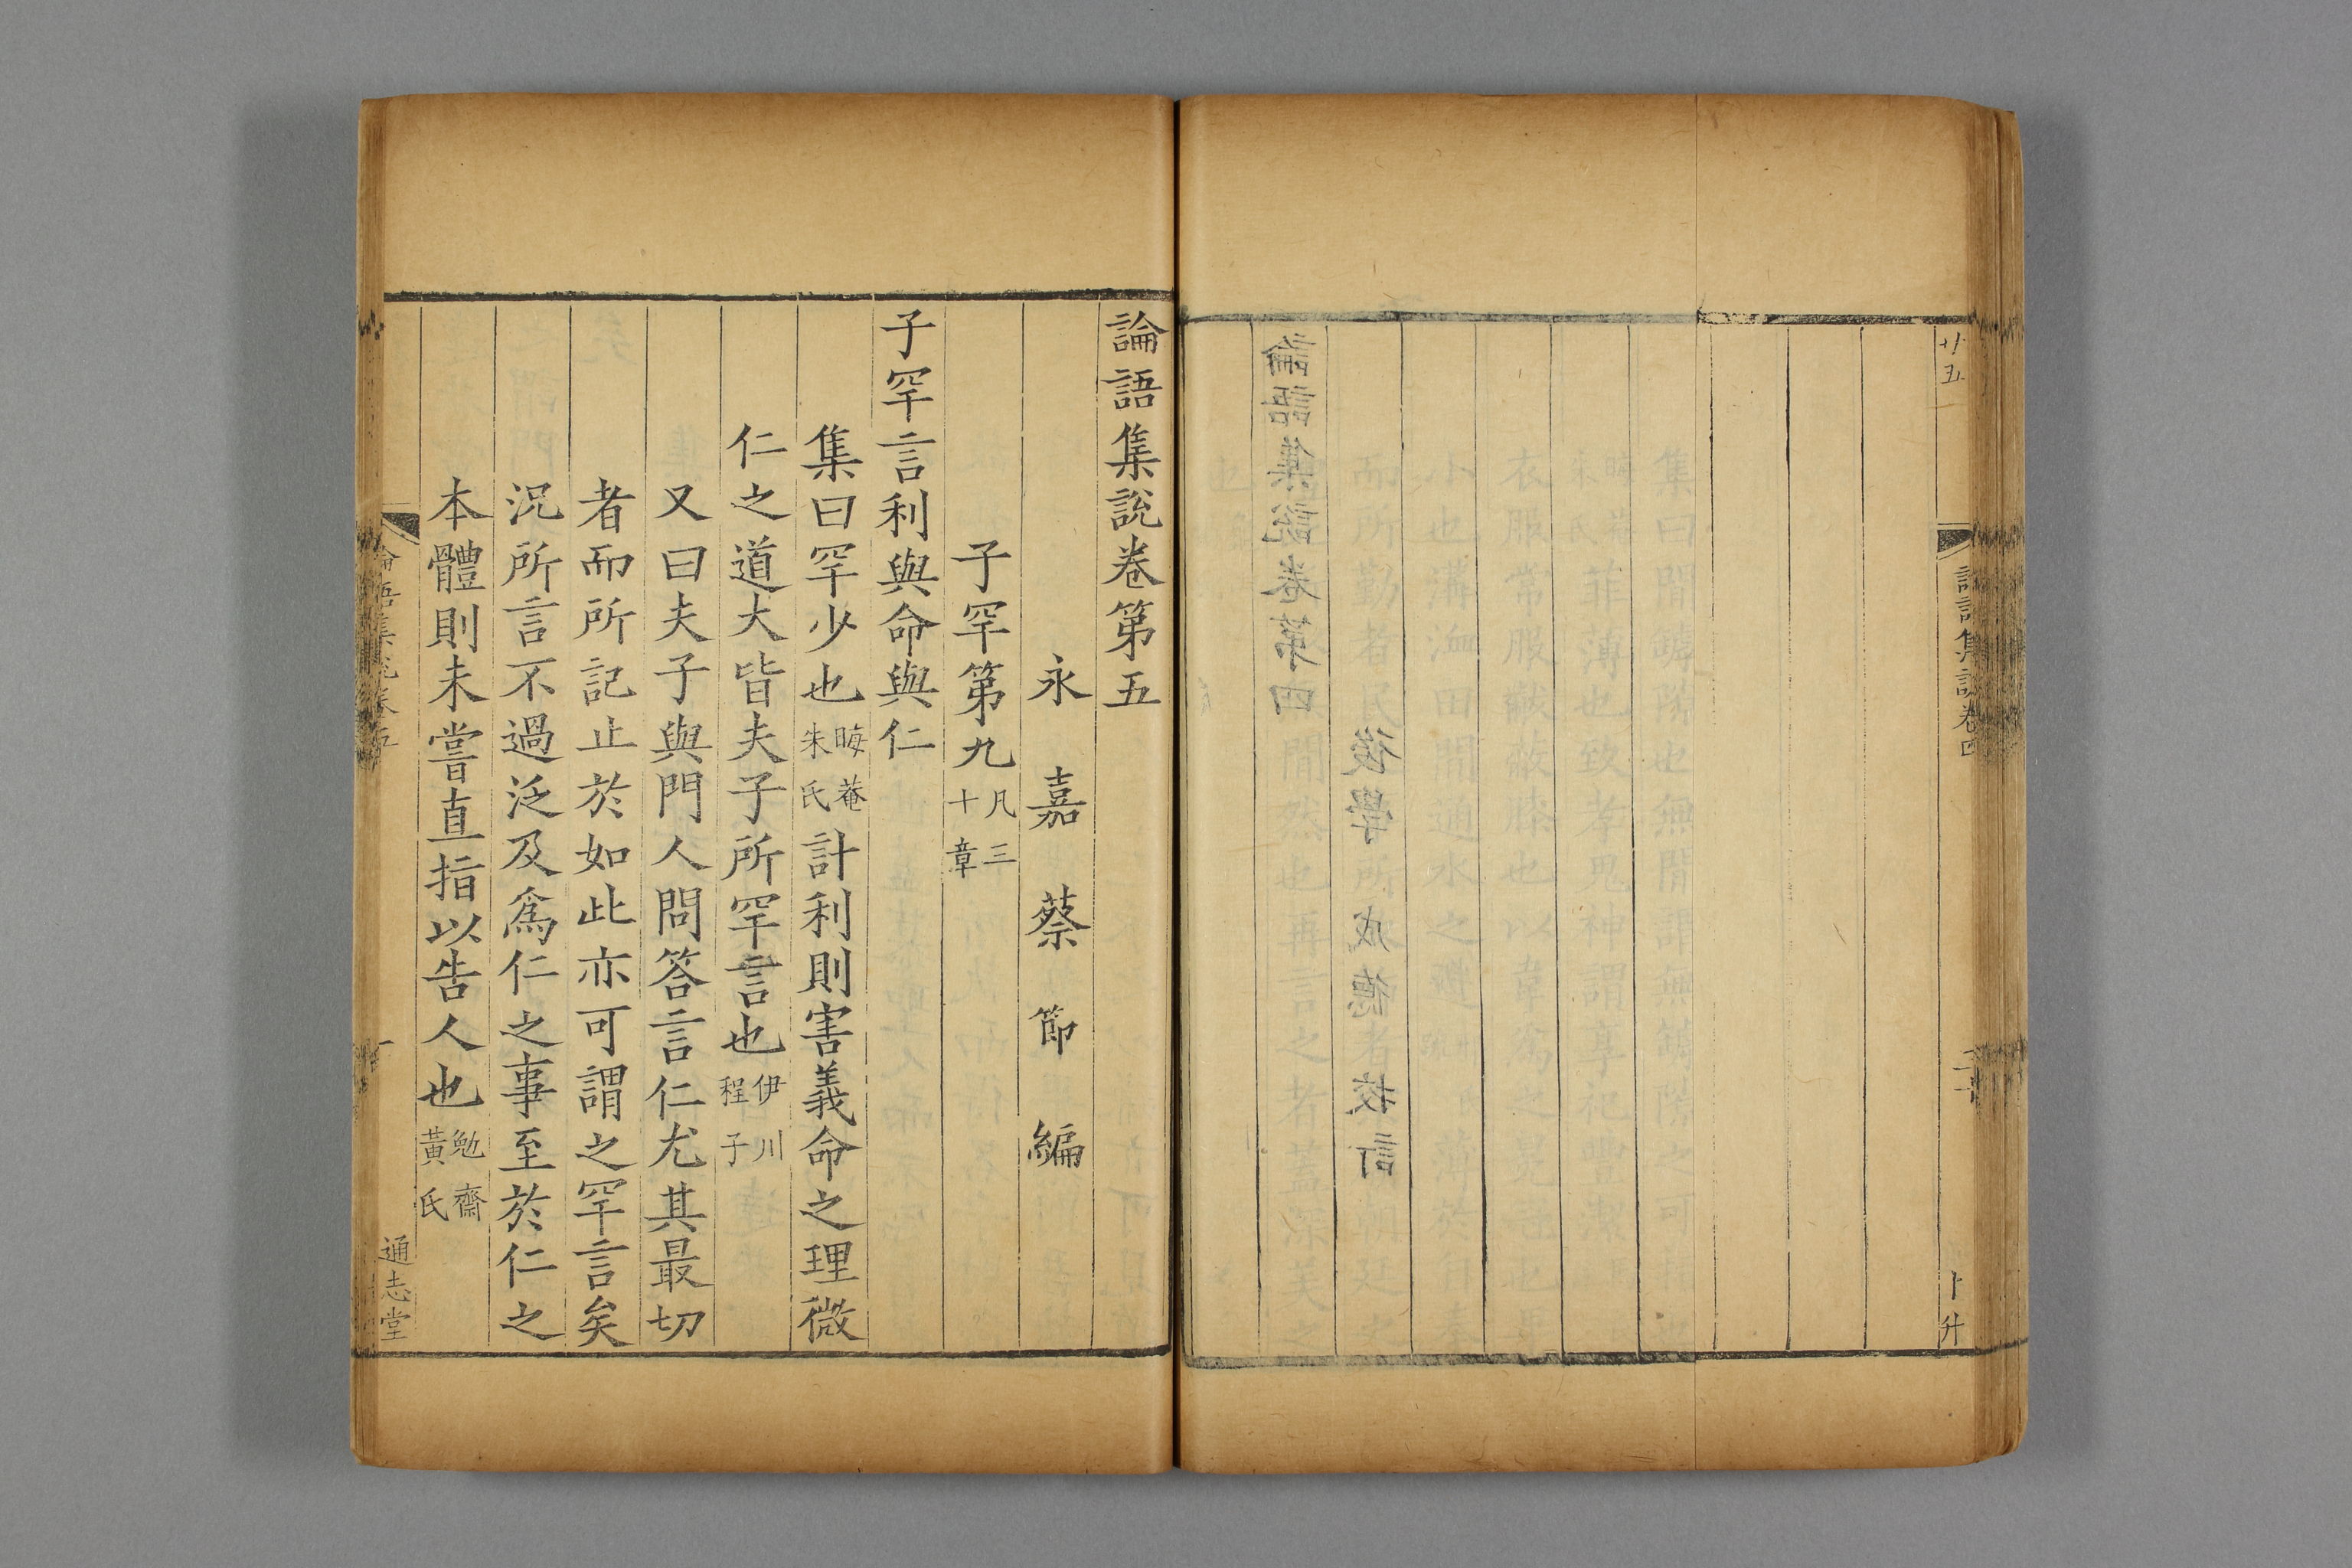 廿五
集說卷四
卜升
論語集說卷第四
後學成德校訂
論語集說卷第五
永嘉蔡節編
子罕第九凡三十章
子罕言利與命與仁
集曰罕少也晦菴朱氏計利則害義命之理微
仁之道大皆夫子所罕言也伊川程子
又曰夫子與門人問答言仁尤其最切
者而所記止於如此亦可謂之罕言矣
況所言不過泛及爲仁之事至於仁之
本體則未嘗直指以告人也勉齋黃氏
論語集說卷五
一
通志堂